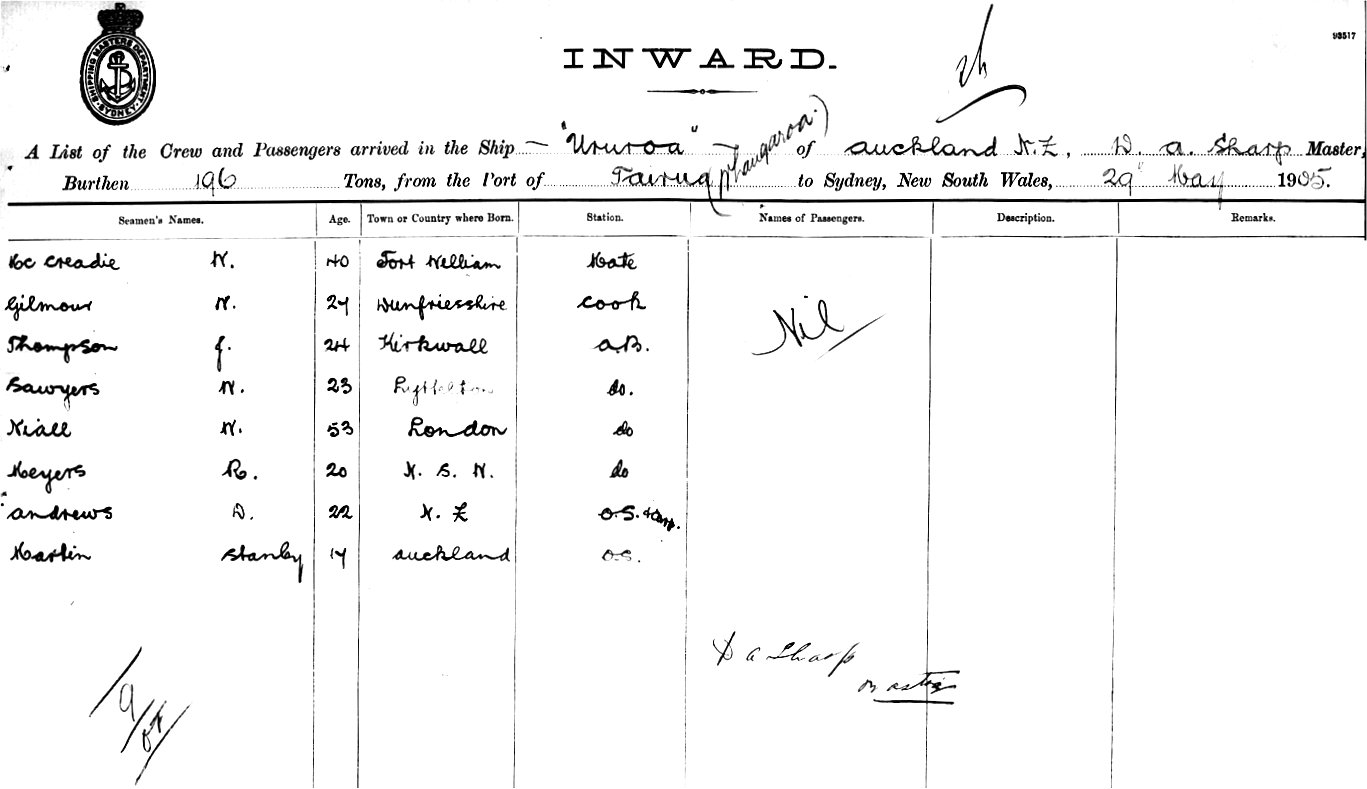 93517
SHIPPING MASTERS DEPARTMENT SYDNEY
INWARD.
A List of the Crew and Passengers arrived in the Ship "Ururoa" of Auckland N.Z, D. A. Sharp Master,
(Whangaroa.)
Burthen 196 Tons, from the Port of Tairua to Sydney, New South Wales, 29" May 1905.
Seamen's Names. Age. Town or Country where Born. Station. Names of Passengers. Description. Remarks.
McCreadie W. 40 Fort William Mate
Gilmour W. 27 Dumfriesshire Cook
Thompson J. 24 Kirkwall A.B.
Sawyers W. 23 Lyttelton do.
Niall W. 53 London do
Meyers R. 20 N. S. W. do
Andrews D. 22 N. Z O.S.
Martin Stanley 17 Auckland O.S.
Nil
D A Sharp
Master